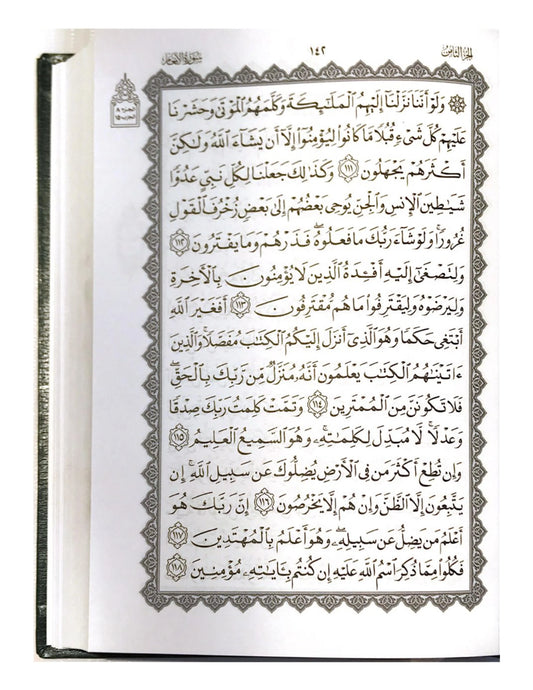 الجزء الثامن ١٤٢ سورة الأنعام
۞ وَلَوْ أَنَّنَا نَزَّلْنَا إِلَيْهِمُ الْمَلَٰٓئِكَةَ وَكَلَّمَهُمُ الْمَوْتَىٰ وَحَشَرْنَا
عَلَيْهِمْ كُلَّ شَىْءٍ قُبُلًا مَّا كَانُوا۟ لِيُؤْمِنُوٓا۟ إِلَّآ أَن يَشَآءَ اللَّهُ وَلَٰكِنَّ
أَكْثَرَهُمْ يَجْهَلُونَ ١١١ وَكَذَٰلِكَ جَعَلْنَا لِكُلِّ نَبِىٍّ عَدُوًّا
شَيَٰطِينَ الْإِنسِ وَالْجِنِّ يُوحِى بَعْضُهُمْ إِلَىٰ بَعْضٍ زُخْرُفَ الْقَوْلِ
غُرُورًا ۚ وَلَوْ شَآءَ رَبُّكَ مَا فَعَلُوهُ ۖ فَذَرْهُمْ وَمَا يَفْتَرُونَ ١١٢
وَلِتَصْغَىٰٓ إِلَيْهِ أَفْـِٔدَةُ الَّذِينَ لَا يُؤْمِنُونَ بِالْءَاخِرَةِ
وَلِيَرْضَوْهُ وَلِيَقْتَرِفُوا۟ مَا هُم مُّقْتَرِفُونَ ١١٣ أَفَغَيْرَ اللَّهِ
أَبْتَغِى حَكَمًا وَهُوَ الَّذِىٓ أَنزَلَ إِلَيْكُمُ الْكِتَٰبَ مُفَصَّلًا ۚ وَالَّذِينَ
ءَاتَيْنَٰهُمُ الْكِتَٰبَ يَعْلَمُونَ أَنَّهُۥ مُنَزَّلٌ مِّن رَّبِّكَ بِالْحَقِّ ۖ
فَلَا تَكُونَنَّ مِنَ الْمُمْتَرِينَ ١١٤ وَتَمَّتْ كَلِمَتُ رَبِّكَ صِدْقًا
وَعَدْلًا ۚ لَّا مُبَدِّلَ لِكَلِمَٰتِهِۦ ۚ وَهُوَ السَّمِيعُ الْعَلِيمُ ١١٥
وَإِن تُطِعْ أَكْثَرَ مَن فِى الْأَرْضِ يُضِلُّوكَ عَن سَبِيلِ اللَّهِ ۚ إِن
يَتَّبِعُونَ إِلَّا الظَّنَّ وَإِنْ هُمْ إِلَّا يَخْرُصُونَ ١١٦ إِنَّ رَبَّكَ هُوَ
أَعْلَمُ مَن يَضِلُّ عَن سَبِيلِهِۦ ۖ وَهُوَ أَعْلَمُ بِالْمُهْتَدِينَ ١١٧
فَكُلُوا۟ مِمَّا ذُكِرَ اسْمُ اللَّهِ عَلَيْهِ إِن كُنتُم بِـَٔايَٰتِهِۦ مُؤْمِنِينَ ١١٨